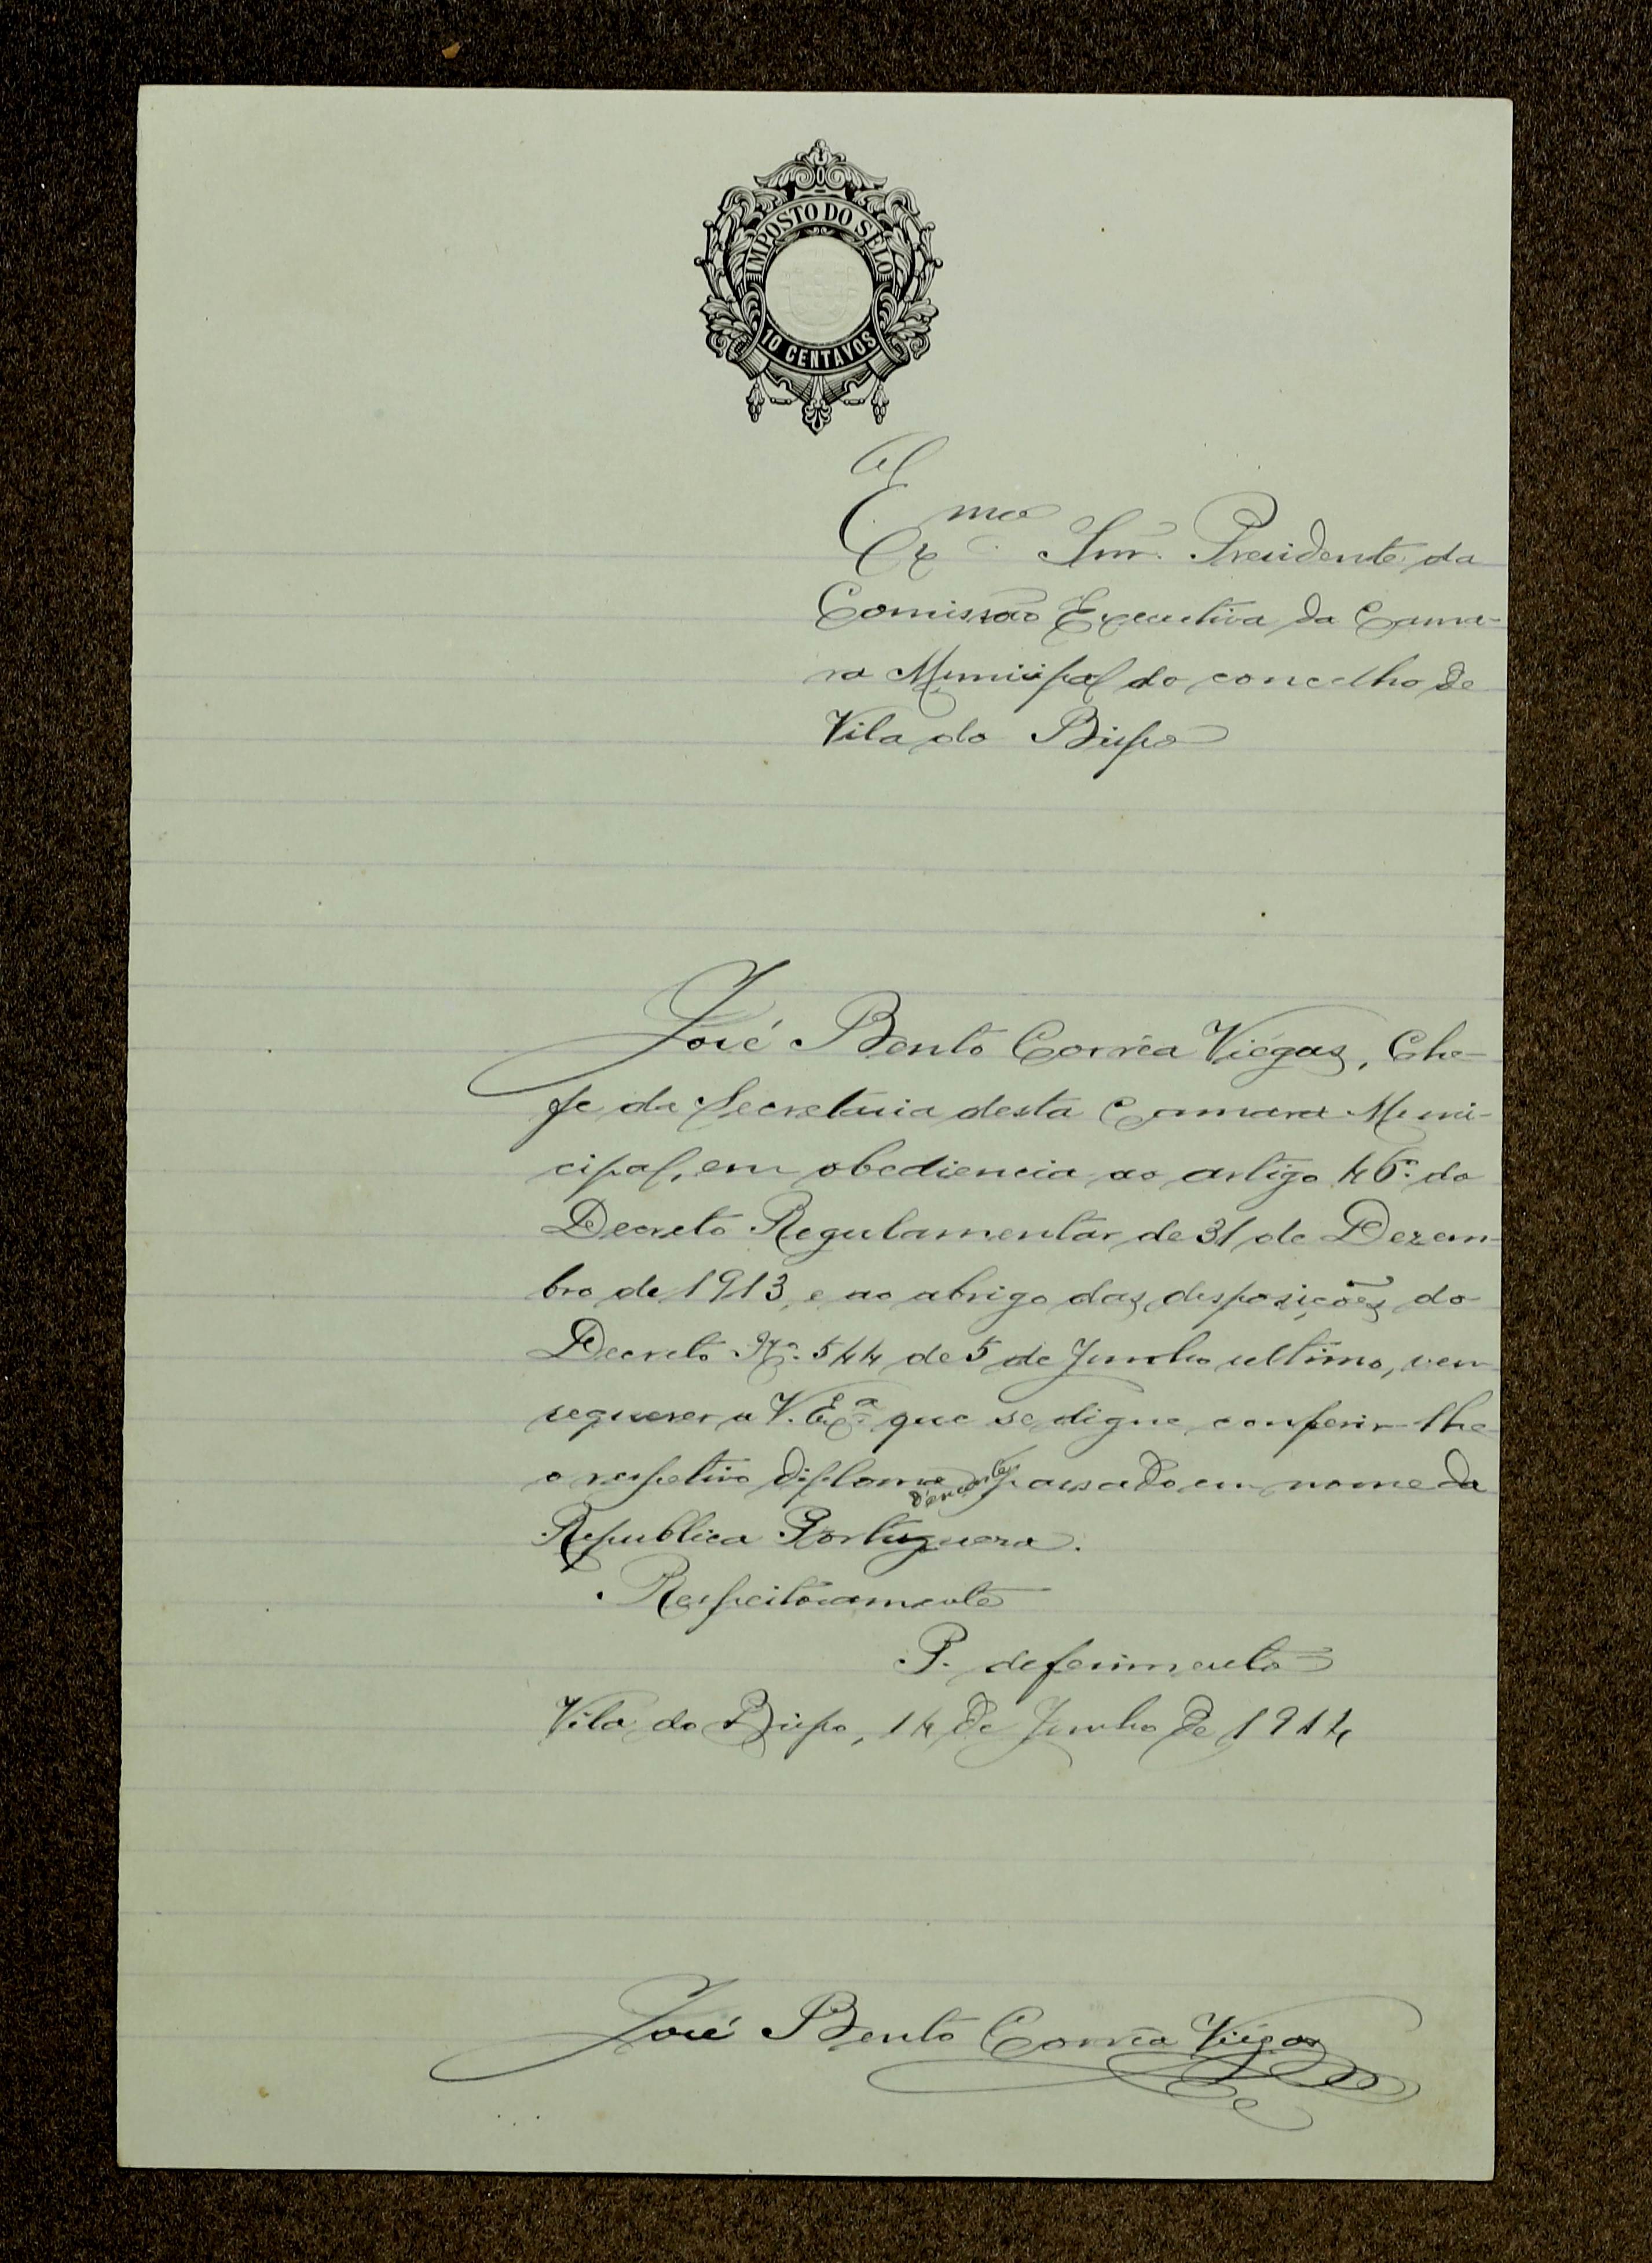 IMPOSTO DO SELO
10 CENTAVOS
Al
Exmo Snr. Presidente da
Comissão Executiva da Cama-
ra Municipal do concelho de
Vila do Bispo
José Bento Corrêa Viégas, Che-
fe da Secretaria desta Camara Muni-
cipal, em obediencia ao artigo 46º do
Decreto Regulamentar de 31 de Dezem-
bro de 1913, e ao abrigo das disposições do
Decreto Nº 544 de 5 de Junho ultimo, vem
requerer a V. Exª que se digne conferir-lhe
o respetivo diploma d'encarte passado em nome da
Republica Portugueza.
Respeitosamente
P. deferimento
Vila do Bispo, 14 de Junho de 1914
José Bento Corrêa Viégas